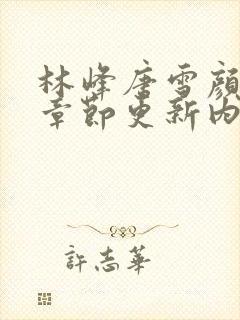 林峰唐雪顏
章節更新內
許志華